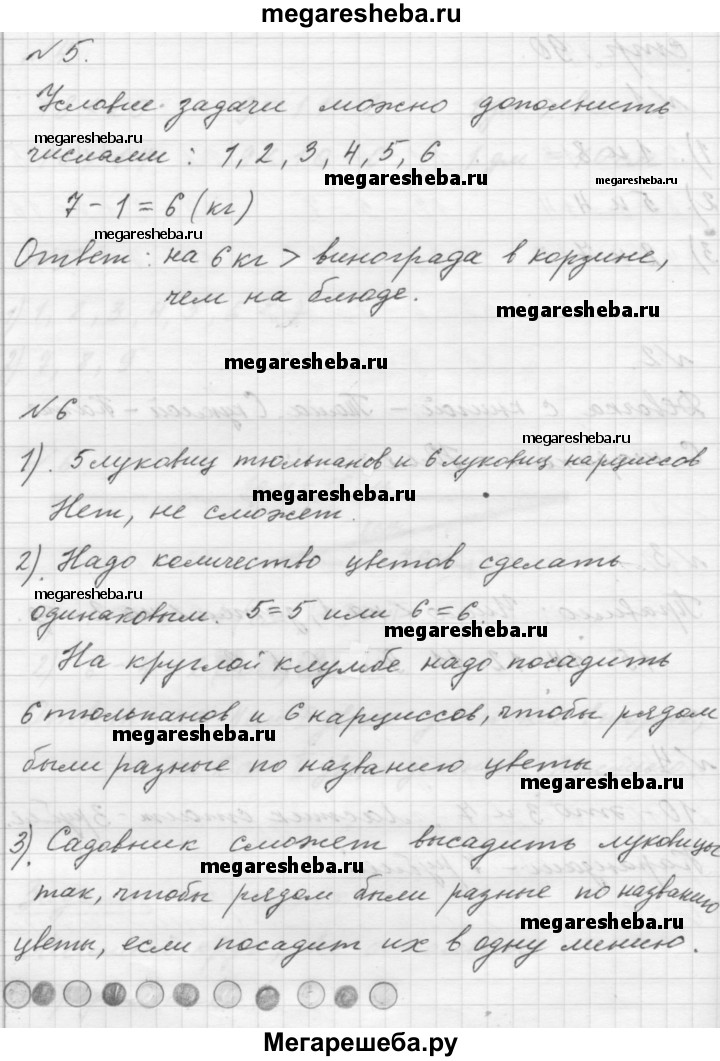 megaresheba.ru
№ 5.
Условие задачи можно дополнить
megaresheba.ru
числами: 1, 2, 3, 4, 5, 6
megaresheba.ru
megaresheba.ru
7 - 1 = 6 (кг)
megaresheba.ru
Ответ: на 6 кг > винограда в корзине,
чем на блюде.
megaresheba.ru
megaresheba.ru
№ 6
megaresheba.ru
1). 5 луковиц тюльпанов и 6 луковиц нарциссов
megaresheba.ru
Нет, не сможет.
2). Надо количество цветов сделать
megaresheba.ru
одинаковым. 5=5 или 6=6.
megaresheba.ru
На круглой клумбе надо посадить
6 тюльпанов и 6 нарциссов, чтобы рядом
megaresheba.ru
были разные по названию цветы
megaresheba.ru
3). Садовник сможет высадить луковицы
megaresheba.ru
так, чтобы рядом были разные по названию
megaresheba.ru
цветы, если посадит их в одну линию.
Мегарешеба.ру